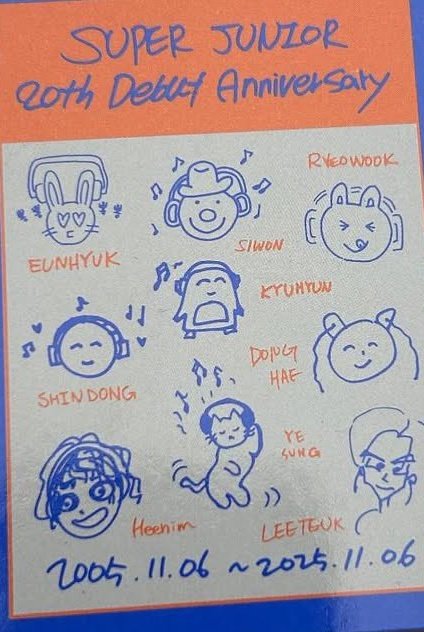 SUPER JUNIOR
20th Debut Anniversary
RYEOWOOK
EUNHYUK
SIWON
KYUHYUN
SHINDONG
DONG
HAE
YE
SUNG
Heenim
LEETEUK
2005.11.06 ~ 2025.11.06